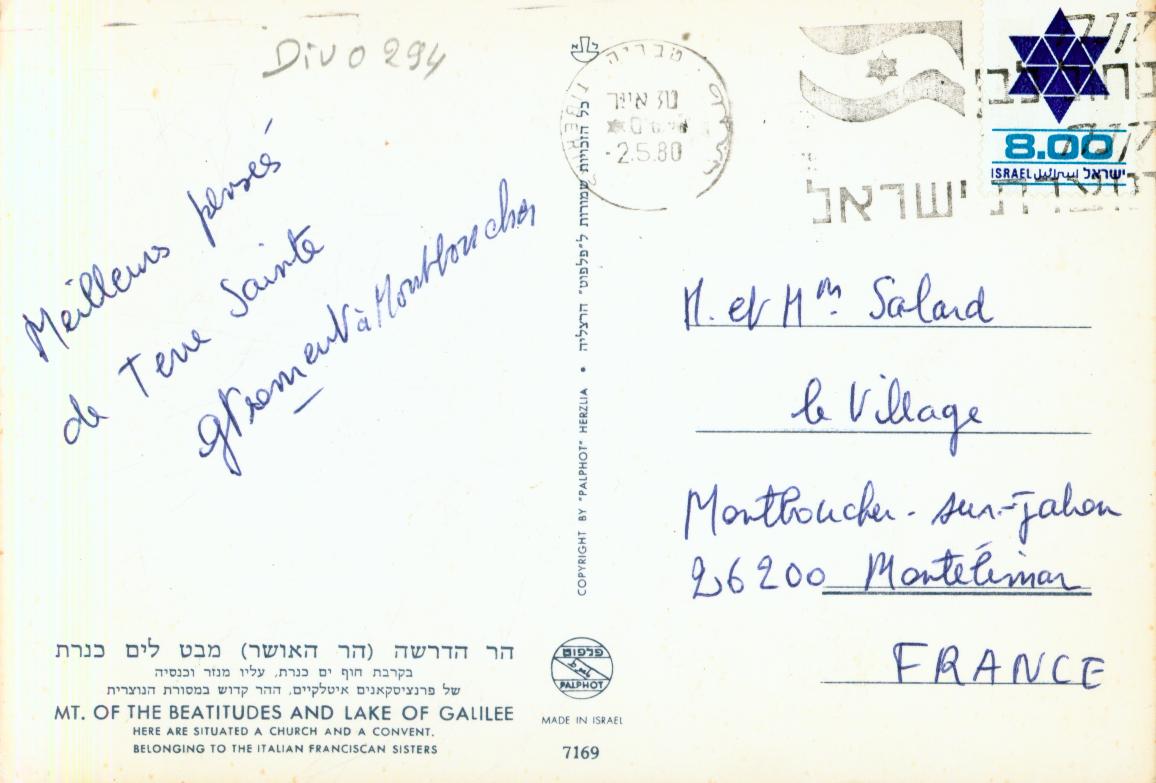 DIVO 294
Meilleurs pensés
de Terre Sainte
à Montboucher
הר הדרשה (הר האושר) מבט לים כנרת
בקרבת חוף ים כנרת, עליו מנזר וכנסיה
של פרנציסקאנים איטלקיים, ההר קדוש במסורת הנוצרית
MT. OF THE BEATITUDES AND LAKE OF GALILEE
HERE ARE SITUATED A CHURCH AND A CONVENT.
BELONGING TO THE ITALIAN FRANCISCAN SISTERS
COPYRIGHT BY "PALPHOT" HERZLIA • כל הזכויות שמורות ל"פלפוט" הרצליה
פלפוט
PALPHOT
MADE IN ISRAEL
7169
טבריה
-2.5.80
ישראל
8.00
ISRAEL اسرائيل ישראל
M. et Mm. Salard
le Village
Montboucher-sur-Jabon
26200 Montélimar
FRANCE